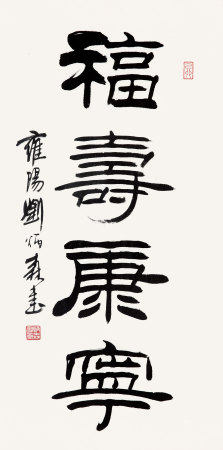 福壽康寧
雍陽劉炳森書